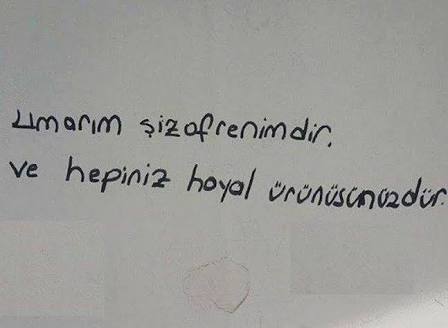 umarım şizofrenimdir.
ve hepiniz hayal ürünüsünüzdür.